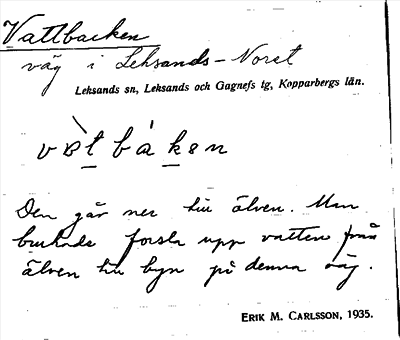 Vattbacken
väg i Leksands-Noret
Leksands sn, Leksands och Gagnefs tg, Kopparbergs län.
vɵ̀t bákɘn
Den går ner till älven. Man
brukade forsla upp vatten från
älven till byn på denna väg.
ERIK M. CARLSSON, 1935.